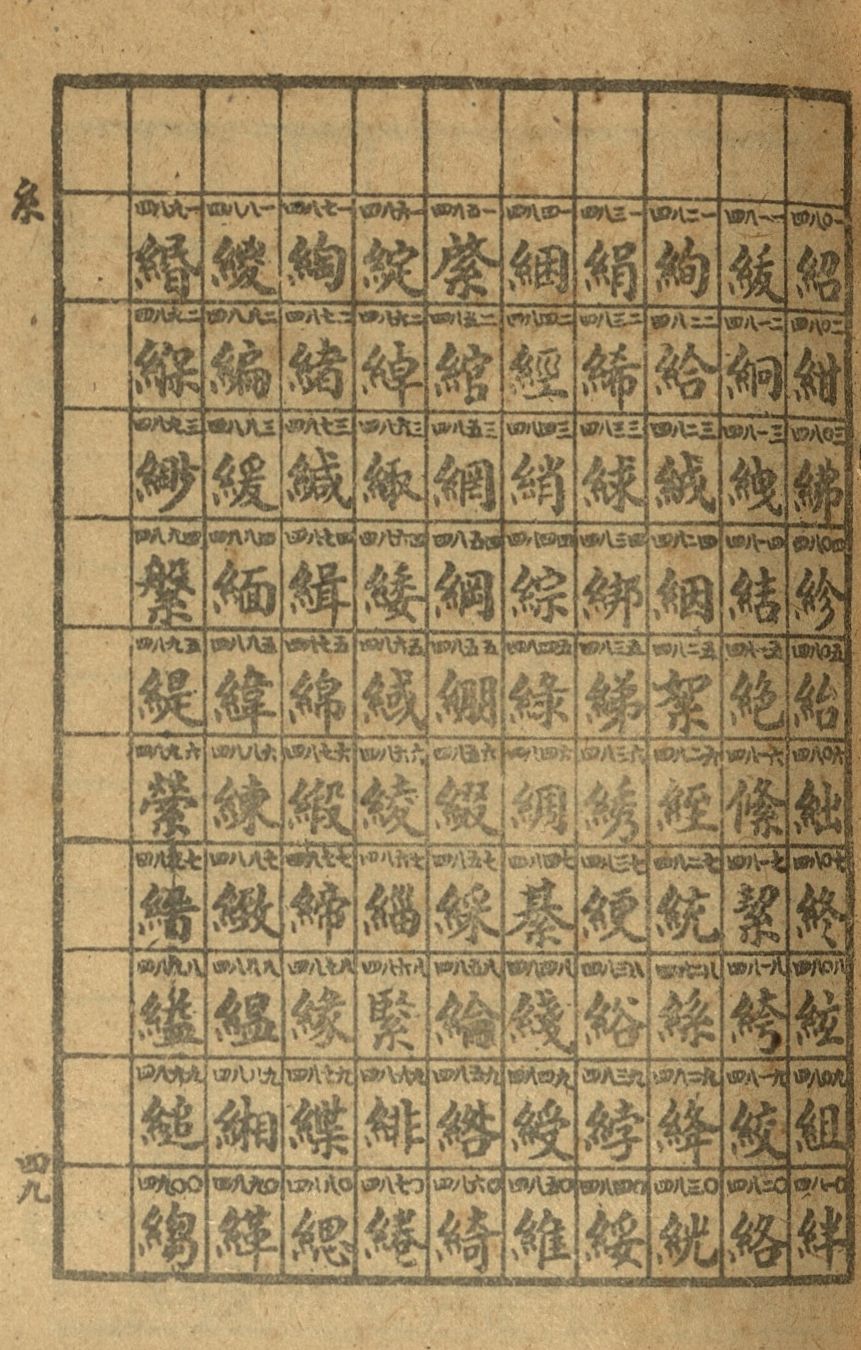 糸
四八〇一
紹
四八〇二
紺
四八〇三
紼
四八〇四
紾
四八〇五
紿
四八〇六
絀
四八〇七
終
四八〇八
絃
四八〇九
組
四八一〇
絆
四八一一
紱
四八一二
絅
四八一三
絏
四八一四
結
四八一五
絕
四八一六
絛
四八一七
絜
四八一八
絝
四八一九
絞
四八二〇
絡
四八二一
絢
四八二二
給
四八二三
絨
四八二四
絪
四八二五
絮
四八二六
絰
四八二七
統
四八二八
絲
四八二九
絳
四八三〇
絖
四八三一
絹
四八三二
絺
四八三三
絿
四八三四
綁
四八三五
綈
四八三六
綉
四八三七
綆
四八三八
綌
四八三九
綍
四八四〇
綏
四八四一
綑
四八四二
經
四八四三
綃
四八四四
綜
四八四五
綠
四八四六
綢
四八四七
綦
四八四八
綫
四八四九
綬
四八五〇
維
四八五一
綮
四八五二
綰
四八五三
網
四八五四
綱
四八五五
綳
四八五六
綴
四八五七
綵
四八五八
綸
四八五九
綹
四八六〇
綺
四八六一
綻
四八六二
綽
四八六三
緅
四八六四
緌
四八六五
緎
四八六六
綾
四八六七
緇
四八六八
緊
四八六九
緋
四八七〇
綣
四八七一
綯
四八七二
緒
四八七三
緘
四八七四
緝
四八七五
綿
四八七六
緞
四八七七
締
四八七八
緣
四八七九
緤
四八八〇
緦
四八八一
緵
四八八二
編
四八八三
緩
四八八四
緬
四八八五
緯
四八八六
練
四八八七
緻
四八八八
緼
四八八九
緗
四八九〇
緙
四八九一
緡
四八九二
緥
四八九三
緲
四八九四
縏
四八九五
緹
四八九六
縈
四八九七
縉
四八九八
縊
四八九九
縋
四九〇〇
縐
四九